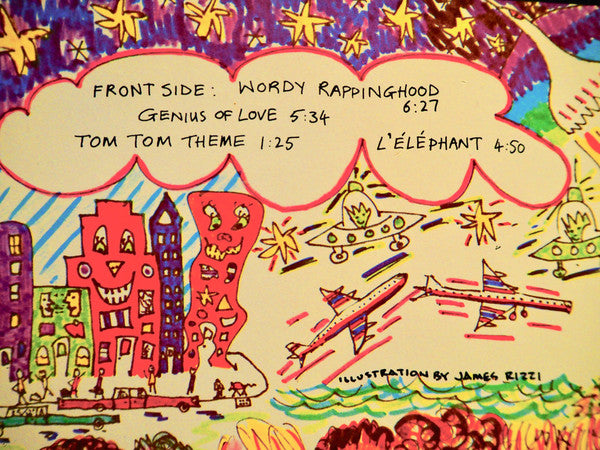 FRONT SIDE: WORDY RAPPINGHOOD
6:27
GENIUS OF LOVE 5:34
TOM TOM THEME 1:25 L'ÉLÉPHANT 4:50
ILLUSTRATION BY JAMES RIZZI